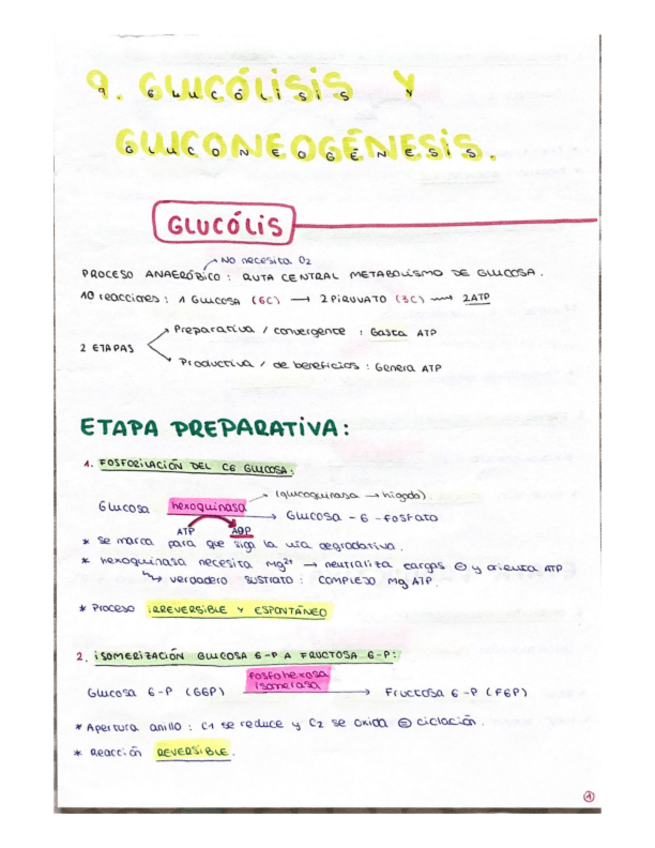 9. GLUCÓLISIS Y
GLUCONEOGÉNESIS.
GLUCÓLIS
NO necesita O2
PROCESO ANAERÓBICO : RUTA CENTRAL METABOLISMO DE GLUCOSA.
10 reacciones : 1 Glucosa (6C) → 2 PIRUVATO (3C) → 2ATP
2 ETAPAS
Preparativa / convergente : Gasta ATP
Productiva / de beneficios : Genera ATP
ETAPA PREPARATIVA:
1. FOSFORILACIÓN DEL C6 GLUCOSA:
(glucoquinasa → hígado).
Glucosa hexoquinasa → Glucosa - 6 - fosfato
ATP ADP
* Se marca para que siga la vía degradativa.
* hexoquinasa necesita Mg2+ → neutraliza cargas ⊖ y orienta ATP
verdadero SUSTRATO : COMPLEJO Mg ATP.
* Proceso IRREVERSIBLE Y ESPONTÁNEO
2. ISOMERIZACIÓN GLUCOSA 6-P A FRUCTOSA 6-P:
fosfohexosa
isomerasa
Glucosa 6-P (G6P) → Fructosa 6-P (F6P)
* Apertura anillo : C1 se reduce y C2 se oxida ciclación.
* Reacción REVERSIBLE.
1